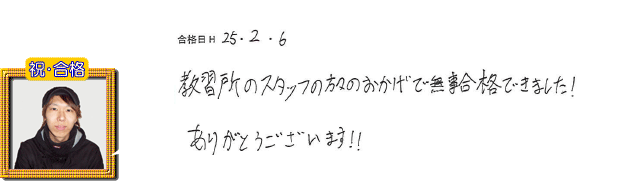 合格日 H 25・2・6
祝・合格
教習所のスタッフの方々のおかげで無事合格できました!
ありがとうございます!!